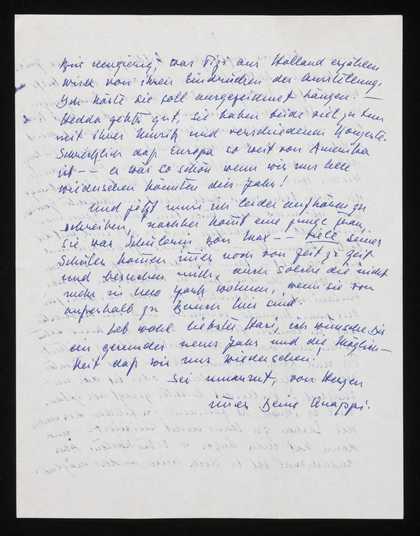 bin neugierig, was Tizi aus Holland erzählen
wird von ihren Eindrücken der Ausstellung.
Ich hörte sie soll ausgezeichnet hängen! —
Hedda gehts gut, sie haben beide viel zu tun
mit ihrer Musik und verschiedenen Konzerte.
Schrecklich dass Europa so weit von Amerika
ist — — es war so schön wenn wir uns alle
wiedersehen könnten dies Jahr!
Und jetzt muss ich leider aufhören zu
schreiben, nachher kommt eine junge Frau,
sie war Schülerin von Max — — viele seiner
Schüler kommen immer noch von Zeit zu Zeit
und besuchen mich, auch solche die nicht
mehr in New York wohnen, wenn sie von
ausserhalb zu Besuch hier sind.
Leb wohl liebste Mari, ich wünsche Dir
ein gesundes neues Jahr und die Möglich-
keit dass wir uns wiedersehen!
Sei umarmt, von Herzen
immer Deine Quappi.